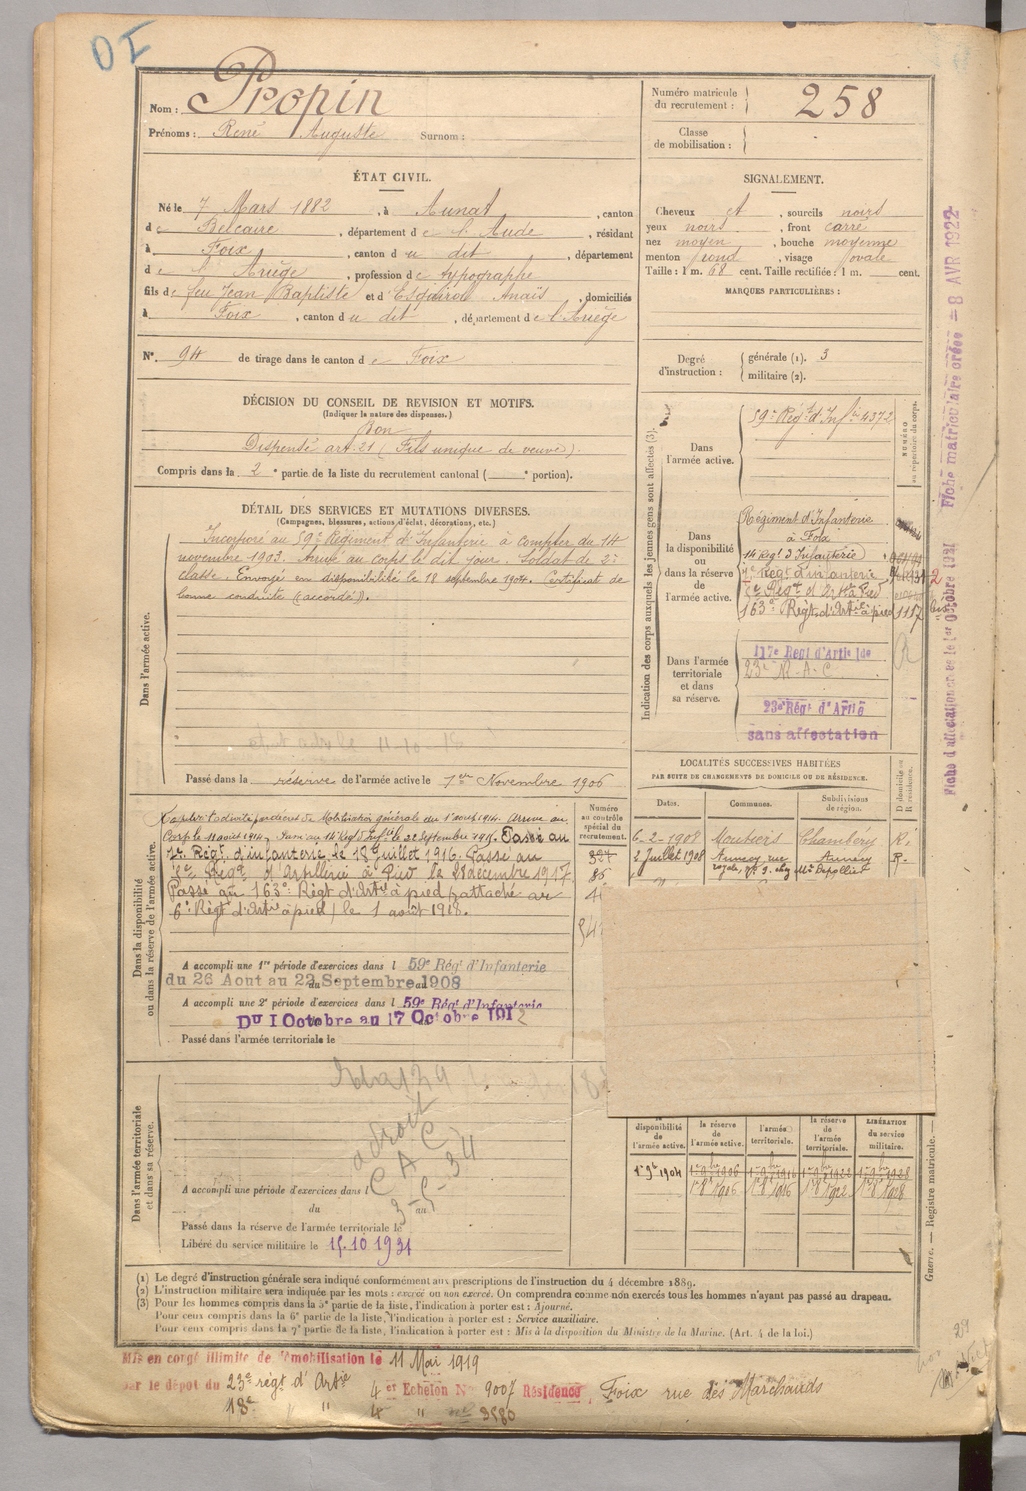 DI
Nom : Propin
Prénoms : René Auguste Surnom :
Numéro matricule du recrutement : 258
Classe de mobilisation :
ÉTAT CIVIL.
Né le 7 Mars 1882, à Aunat, canton
de Belcaire, département de l'Aude, résidant
à Foix, canton du dit, département
de l'Ariège, profession de typographe
fils de feu Jean Baptiste et d'Esquirol Anaïs, domiciliés
à Foix, canton du dit, département de l'Ariège
N°. 94 de tirage dans le canton de Foix
SIGNALEMENT.
Cheveux et, sourcils noirs
yeux noirs, front carré
nez moyen, bouche moyenne
menton rond, visage ovale
Taille : 1 m. 68 cent. Taille rectifiée : 1 m. cent.
MARQUES PARTICULIÈRES :
Degré d'instruction : générale (1). 3
militaire (2).
DÉCISION DU CONSEIL DE REVISION ET MOTIFS.
(Indiquer la nature des dispenses.)
Bon
Dispensé art. 21 (Fils unique de veuve).
Compris dans la 2e partie de la liste du recrutement cantonal ( e portion).
DÉTAIL DES SERVICES ET MUTATIONS DIVERSES.
(Campagnes, blessures, actions d'éclat, décorations, etc.)
Dans l'armée active.
Incorporé au 59e Régiment d'Infanterie à compter du 14
novembre 1903. Arrivé au corps le dit jour. Soldat de 2e
classe. Envoyé en disponibilité le 18 septembre 1904. Certificat de
bonne conduite (accordé).
Passé dans la réserve de l'armée active le 1er Novembre 1906
Indication des corps auxquels les jeunes gens sont affectés (3).
NUMÉRO au répertoire du corps.
Dans l'armée active.
59e Régt d'Infie 4372
Dans la disponibilité ou dans la réserve de l'armée active.
Régiment d'Infanterie
à Foix
14 Régt d'Infanterie
7e Régt d'infanterie
6e Régt d'Artie à Pied
163e Régt d'Artie à pied 1117 bis
Dans l'armée territoriale et dans sa réserve.
117e Regt d'Artie lde
23e R.A.C
23e Régt d'Artie
sans affectation
Fiche d'affectation créée le 1er octobre 1921 Fiche matriculaire créée = 8 AVR 1922
LOCALITÉS SUCCESSIVES HABITÉES
PAR SUITE DE CHANGEMENTS DE DOMICILE OU DE RÉSIDENCE.
Dates. Communes. Subdivisions de région. D domicile ou R résidence.
6-2-1908 Moutiers Chambéry R.
2 Juillet 1908 Annecy rue Annecy R.
royale, n° 9. chez Mr Depollier
Dans la disponibilité ou dans la réserve de l'armée active.
Numéro au contrôle spécial du recrutement.
Rappelé à l'activité par décret de Mobilisation générale du 1er août 1914. Arrivé au
Corps le 11 août 1914. Passé au 14e Régt Inftie le 22 septembre 191. Passé au
7e Régt d'infanterie, le 18 Juillet 1916. Passé au
6e Régt d'Artillerie à Pied le 28 décembre 1917.
Passé au 163e Régt d'Artie à pied (rattaché au
6e Régt d'Artie à pied) le 1 août 1918.
A accompli une 1re période d'exercices dans l 59e Régt d'Infanterie
du 26 Aout au 22 Septembre 1908
A accompli une 2e période d'exercices dans l 59e Régt d'Infanterie
DU 1 Octobre au 17 Octobre 1912
Passé dans l'armée territoriale le
Dans l'armée territoriale et dans sa réserve.
a droit
C A C
3-5-34
A accompli une période d'exercices dans l
du au
Passé dans la réserve de l'armée territoriale le
Libéré du service militaire le 15.10 1931
disponibilité de l'armée active. la réserve de l'armée active. l'armée territoriale. la réserve de l'armée territoriale. LIBÉRATION du service militaire.
1er 9bre 1904 1er 9bre 1906 1er 9bre 1916 1er 9bre 1922 1er 9bre 1928
1er 8bre 1906 1er 8bre 1916 1er 8bre 1922 1er 8bre 1928
Guerre. — Registre matricule. —
(1) Le degré d'instruction générale sera indiqué conformément aux prescriptions de l'instruction du 4 décembre 1889.
(2) L'instruction militaire sera indiquée par les mots : exercé ou non exercé. On comprendra comme non exercés tous les hommes n'ayant pas passé au drapeau.
(3) Pour les hommes compris dans la 5e partie de la liste, l'indication à porter est : Ajourné.
Pour ceux compris dans la 6e partie de la liste, l'indication à porter est : Service auxiliaire.
Pour ceux compris dans la 7e partie de la liste, l'indication à porter est : Mis à la disposition du Ministre de la Marine. (Art. 4 de la loi.)
Mis en congé illimité de démobilisation le 11 Mai 1919
par le dépôt du 23e régt d'Artie 4er Echelon N° 9007 Résidence Foix rue des Marchands
18e " " 4 " n° 3580